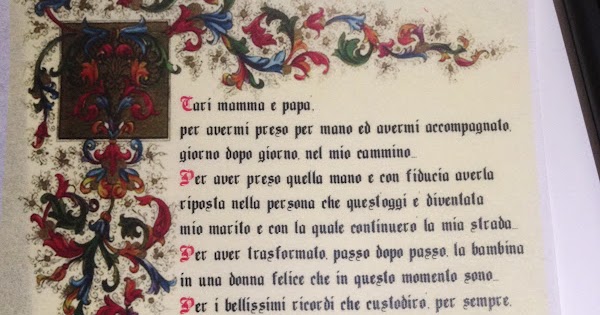 Cari mamma e papa,
per avermi preso per mano ed avermi accompagnato,
giorno dopo giorno, nel mio cammino...
Per aver preso quella mano e con fiducia averla
riposta nella persona che questoggi e diventata
mio marito e con la quale continuero la mia strada...
Per aver trasformato, passo dopo passo, la bambina
in una donna felice che in questo momento sono...
Per i bellissimi ricordi che custodiro, per sempre,